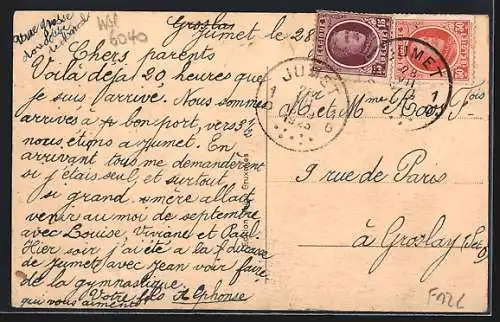 Groslay
Jumet le 28
Chers parents
Voilà déjà 20 heures que
je suis arrivé. Nous sommes
arrivés a bon port, vers 3½
nous étions a Jumet. En
arrivant tous me demandèrent
si j'étais seul, et surtout
si grand-mère allait
venir au moi de septembre
avec Louise Viviane et Paul.
Hier soir j'ai été a la
de Jumet avec Jean voir faire
de la gymnastique.
Votre fils Alphonse
qui vous aiment
JUMET
1
1925
6
JUMET
1
BELGIQUE
15
BELGIE
BELGIQUE
30
BELGIE
M et Mme Roos Fois
9 rue de Paris
à Groslay (S et O)
6040
F12L